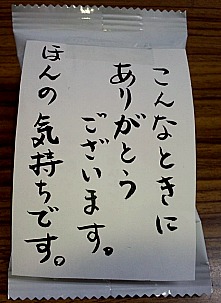 こんなときに
ありがとう
ございます。
ほんの気持ちです。